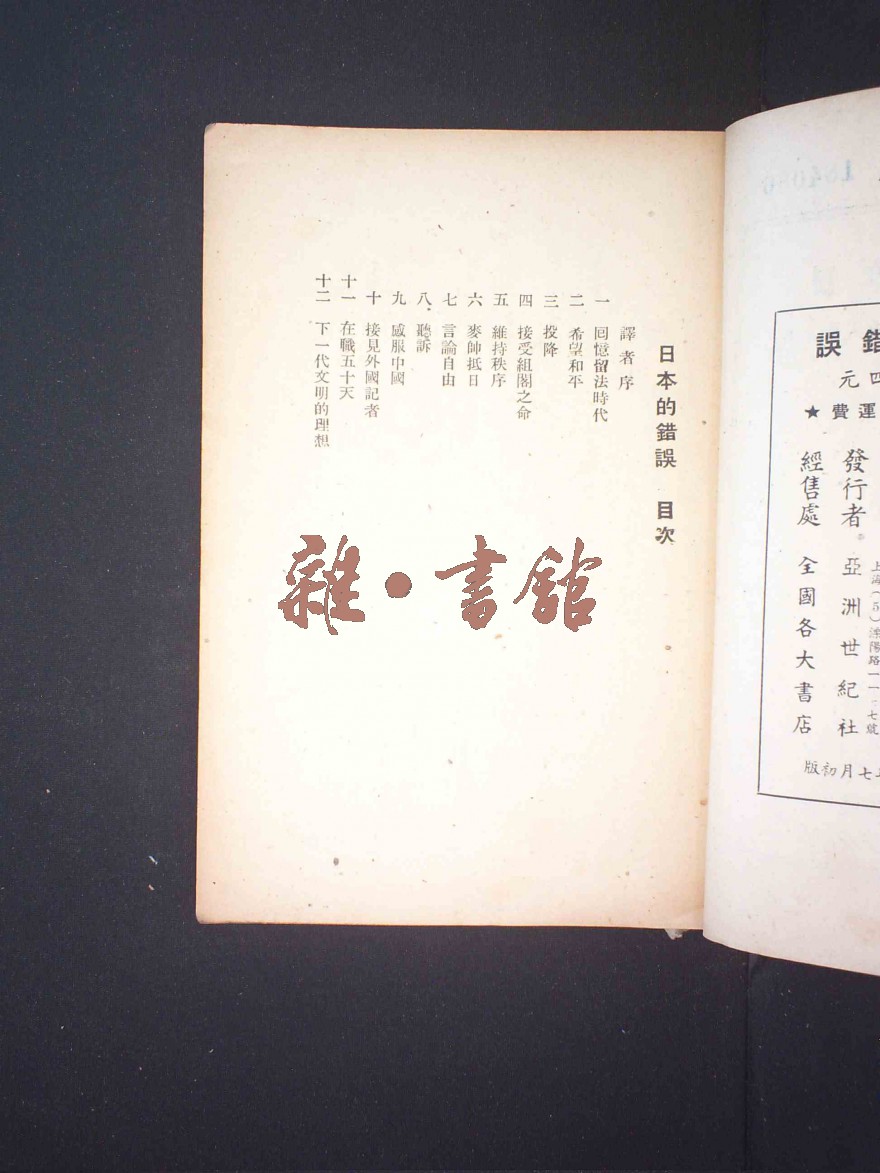 日本的錯誤　目次
譯者序
一　囘憶留法時代
二　希望和平
三　投降
四　接受組閣之命
五　維持秩序
六　麥帥抵日
七　言論自由
八．　聽訴
九　感服中國
十　接見外國記者
十一　在職五十天
十二　下一代文明的理想
雜・書館
錯誤
四元
運費★
發行者　亞洲世紀社
上海（5）溧陽路一一
七號
經售處　全國各大書店
七月初版